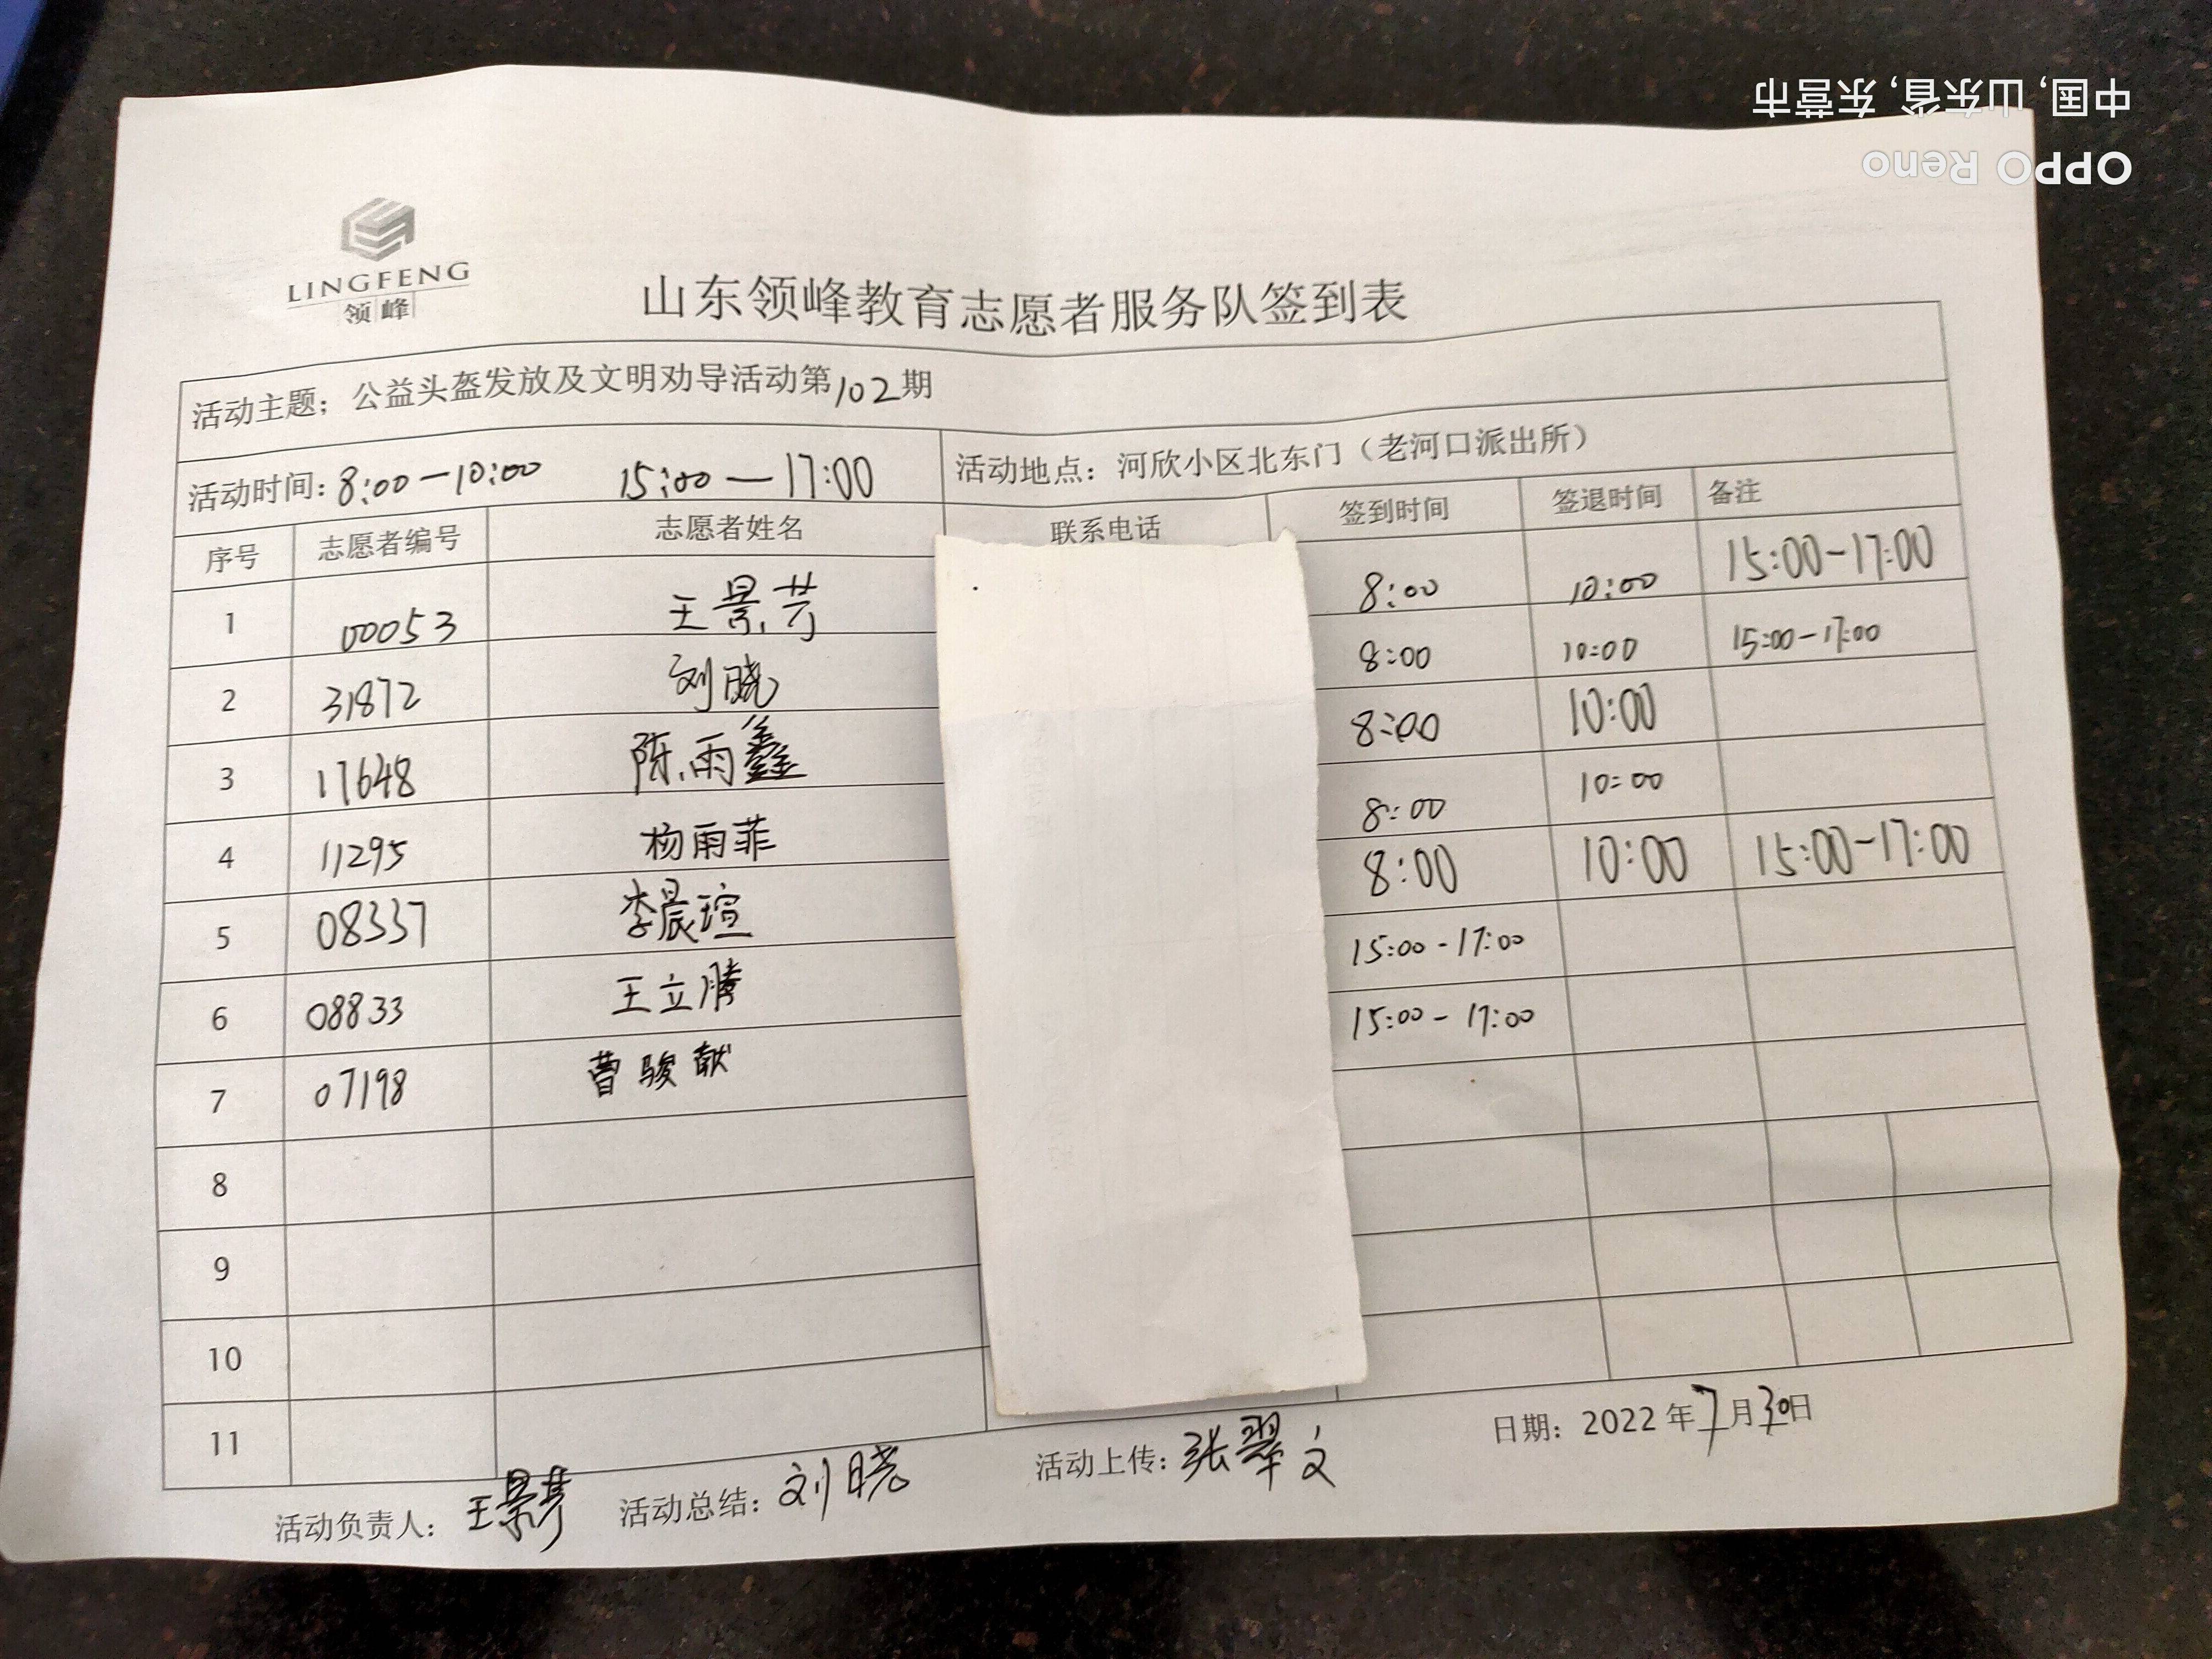 中国, 山东省, 东营市
OPPO Reno
LINGFENG
领峰
山东领峰教育志愿者服务队签到表
活动主题；公益头盔发放及文明劝导活动第102期
活动时间：8:00-10:00 15:00-17:00 活动地点：河欣小区北东门（老河口派出所）
序号 志愿者编号 志愿者姓名 联系电话 签到时间 签退时间 备注
1 00053 王景芳 8:00 10:00 15:00-17:00
2 31872 刘晓 8:00 10:00 15:00-17:00
3 17648 陈雨鑫 8:00 10:00
4 11295 杨雨菲 8:00 10:00
5 08337 李晨瑄 8:00 10:00 15:00-17:00
6 08833 王立腾 15:00-17:00
7 07198 曹骏献 15:00-17:00
8
9
10
11
活动负责人：王景芳 活动总结：刘晓 活动上传：张翠文 日期：2022年7月30日